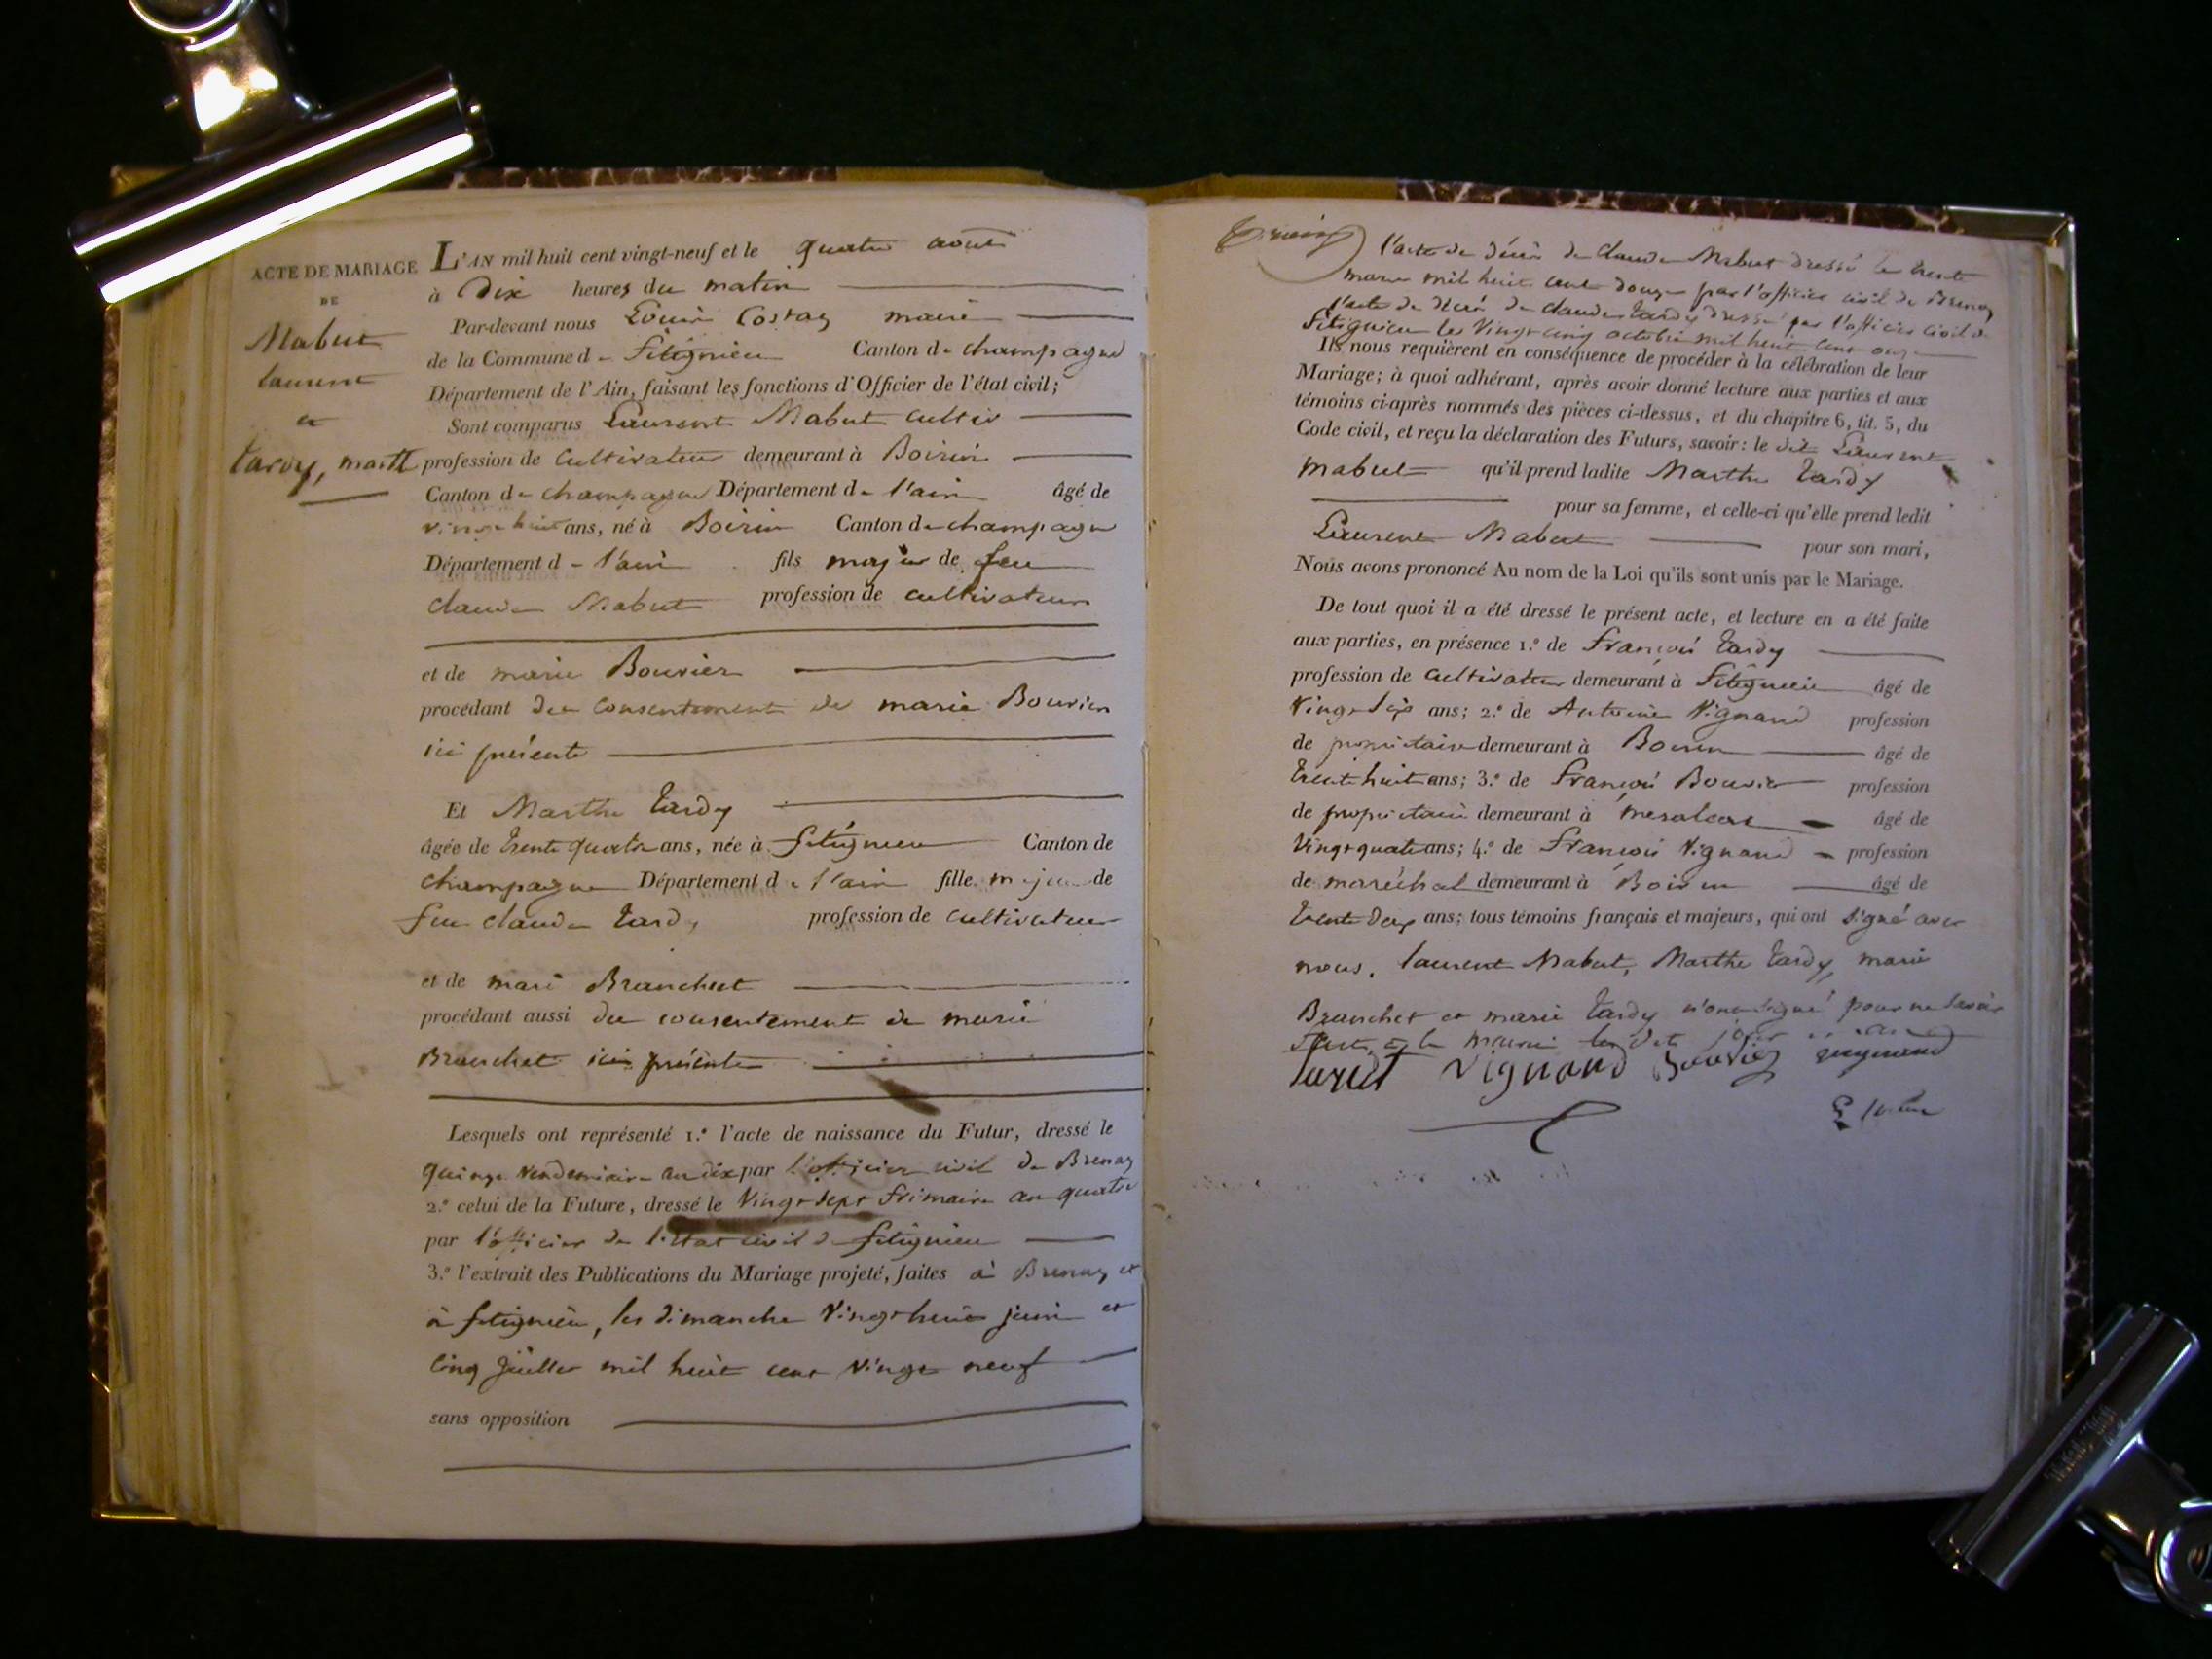 ACTE DE MARIAGE
DE
Mabut
laurent
et
tardy, marth
L'AN mil huit cent vingt-neuf et le quatre aout
à Dix heures du matin
Par-devant nous Louis Costaz maire
de la Commune d - fitignieu Canton de champagne
Département de l'Ain, faisant les fonctions d'Officier de l'état civil;
Sont comparus Laurent Mabut cultiv
profession de Cultivateur demeurant à Boirin
Canton de champagne Département de l'ain âgé de
vingt huit ans, né à Boirin Canton de champagne
Département d - l'ain fils majeur de feu
claude Mabut profession de cultivateur
et de marie Bouvier
procédant du consentement de marie Bouvier
ici présente
Et Marthe tardy
âgée de trente quatre ans, née à fitignieu Canton de
champagne Département de l'ain fille majeure de
feu claude tardy profession de cultivateur
et de mari Branchet
procédant aussi du consentement de marie
Branchet ici présente
Lesquels ont représenté 1.º l'acte de naissance du Futur, dressé le
quinze vendemiaire an dix par l'officier civil de Brenaz
2.º celui de la Future, dressé le vingt sept frimaire an quatre
par l'officier de l'Etat civil de fitignieu
3.º l'extrait des Publications du Mariage projeté, faites à Brenaz et
à fitignieu, les dimanche vingt huit juin et
cinq juillet mil huit cent vingt neuf
sans opposition
l'acte de décès de claude Mabut dressé le trente
mars mil huit cent douze par l'officier civil de Brenaz
l'acte de décès de claude tardy dressé par l'officier civil de
fitignieu le vingt cinq octobre mil huit cent onze
Ils nous requièrent en conséquence de procéder à la célébration de leur
Mariage; à quoi adhérant, après avoir donné lecture aux parties et aux
témoins ci-après nommés des pièces ci-dessus, et du chapitre 6, tit. 5, du
Code civil, et reçu la déclaration des Futurs, savoir: le dit Laurent
mabut qu'il prend ladite Marthe tardy
pour sa femme, et celle-ci qu'elle prend ledit
Laurent Mabut pour son mari,
Nous avons prononcé Au nom de la Loi qu'ils sont unis par le Mariage.
De tout quoi il a été dressé le présent acte, et lecture en a été faite
aux parties, en présence 1.º de françois tardy
profession de cultivateur demeurant à fitignieu âgé de
vingt six ans; 2.º de Antoine Vignand profession
de propriétaire demeurant à Boirin âgé de
trente huit ans; 3.º de françois Bouvier profession
de propriétaire demeurant à âgé de
vingt quatre ans; 4.º de françois Vignand profession
de maréchal demeurant à Boirin âgé de
trente deux ans; tous témoins français et majeurs, qui ont signé avec
nous. laurent Mabut, Marthe tardy, marie
Branchet et marie tardy n'ont signé pour ne savoir
Vignand Bouvier